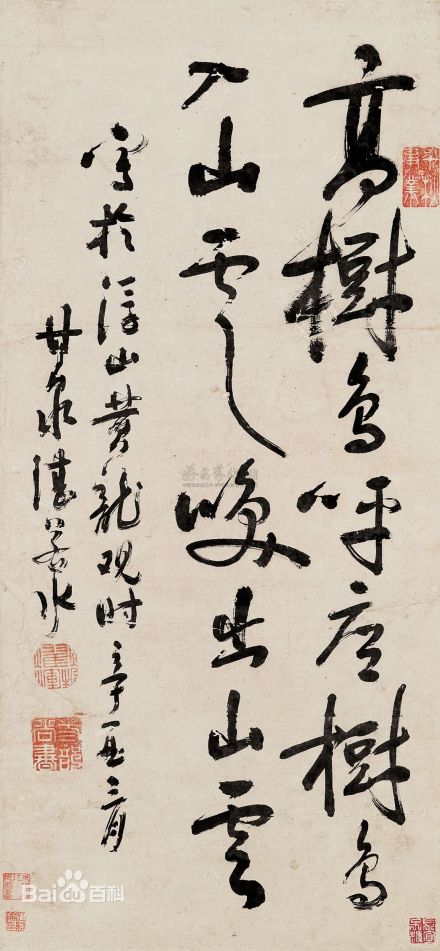 高樹鳥呼底樹鳥
入山雲喚出山雲
寫於浮山黃龍观时辛三月
甘泉湛若水
尚書
Baidu百科